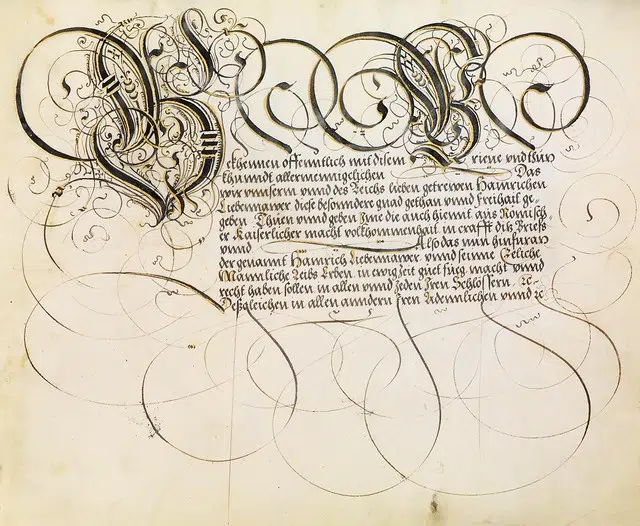 Bekhennen offenntlich mit disem Brieue vnd thun
khundt allermennigclichen Das
wir vnnserm vnnd des Reichs lieben getrewen Hainrichen
Liebenmawer dise besondere gnad gethan vnnd freihait ge-
geben Thuen vnnd geben Jme die auch hiemit aus Römisch-
er Kaiserlicher macht volkhommenhait in crafft ditz Briefs
vnnd Also das nun hinfuran
der genannt Hainrich Liebenmawer vnnd seine Eeliche
Männliche Leibs Erben in ewig zeit guet fueg macht vnnd
recht haben sollen in allen vnnd jeden Jren Schlössern, ꝛc
Deßgleichen in allen anndern Jren vnnd ꝛc